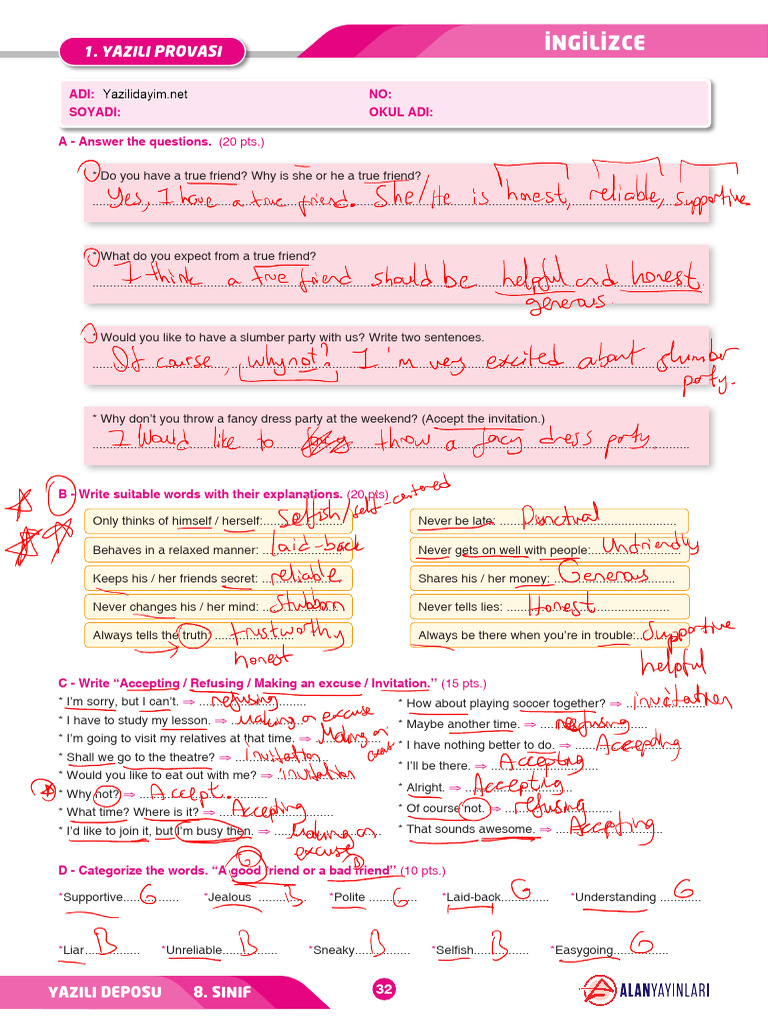 İNGİLİZCE
1. YAZILI PROVASI
ADI: Yazilidayim.net NO:
SOYADI: OKUL ADI:
A - Answer the questions. (20 pts.)
* Do you have a true friend? Why is she or he a true friend?
Yes, I have a true friend. She/He is honest, reliable, supportive
* What do you expect from a true friend?
I think a true friend should be helpful and honest
generous
* Would you like to have a slumber party with us? Write two sentences.
Of course, why not? I'm very excited about slumber
party.
* Why don't you throw a fancy dress party at the weekend? (Accept the invitation.)
I would like to throw a facy dress party.
B - Write suitable words with their explanations. (20 pts)
Only thinks of himself / herself: selfish/self-centered
Never be late: Punctual
Behaves in a relaxed manner: laid-back
Never gets on well with people: Unfriendly
Keeps his / her friends secret: reliable
Shares his / her money: Generous
Never changes his / her mind: Stubborn
Never tells lies: Honest
Always tells the truth: trustworthy
honest
Always be there when you're in trouble: Supportive
helpful
C - Write “Accepting / Refusing / Making an excuse / Invitation.” (15 pts.)
* I'm sorry, but I can't. ⇒ refusing
* How about playing soccer together? ⇒ invitation
* I have to study my lesson. ⇒ making an excuse
* Maybe another time. ⇒ refusing
* I'm going to visit my relatives at that time. ⇒ Making an
* I have nothing better to do. ⇒ Accepting
* Shall we go to the theatre? ⇒ invitation
* I'll be there. ⇒ Accepting
* Would you like to eat out with me? ⇒ invitation
* Alright. ⇒ Accepting
* Why not? ⇒ Accept.
* Of course not. ⇒ refusing
* What time? Where is it? ⇒ Accepting
* That sounds awesome. ⇒ Accepting
* I'd like to join it, but I'm busy then. ⇒ Making an
excuse
D - Categorize the words. “A good friend or a bad friend” (10 pts.)
G B
*Supportive G *Jealous B *Polite G *Laid-back G *Understanding G
*Liar B *Unreliable B *Sneaky B *Selfish B *Easygoing G
YAZILI DEPOSU 8. SINIF 32 ALANYAYINLARI